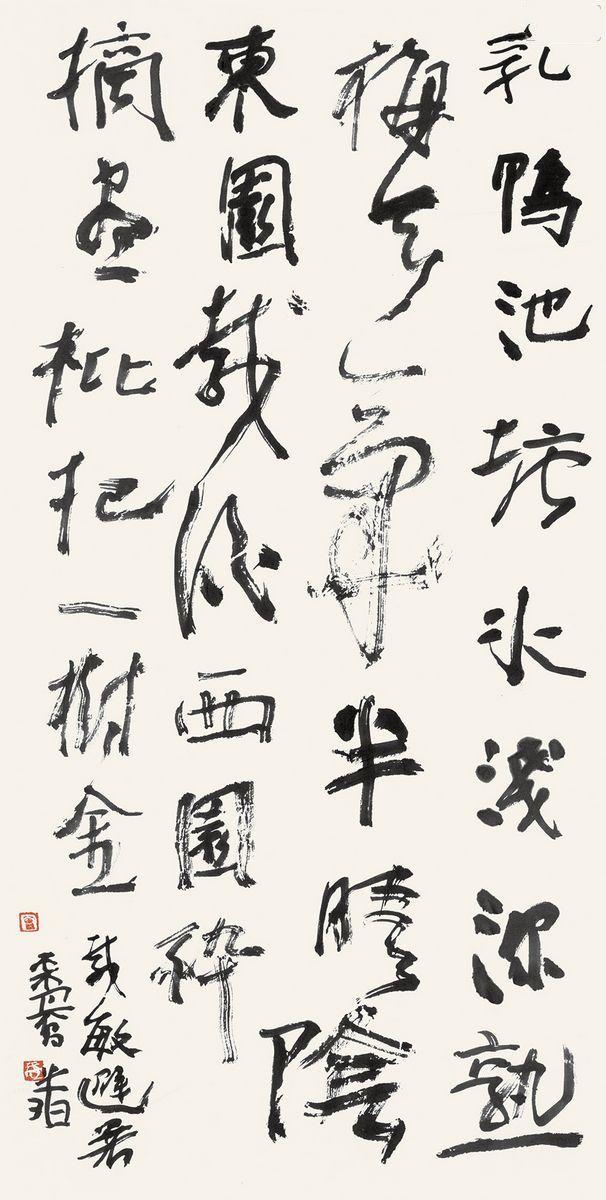 乳鴨池塘水淺深熟
梅天氣半晴陰
東園載酒西園醉
摘盡枇杷一樹金
戴敏避暑